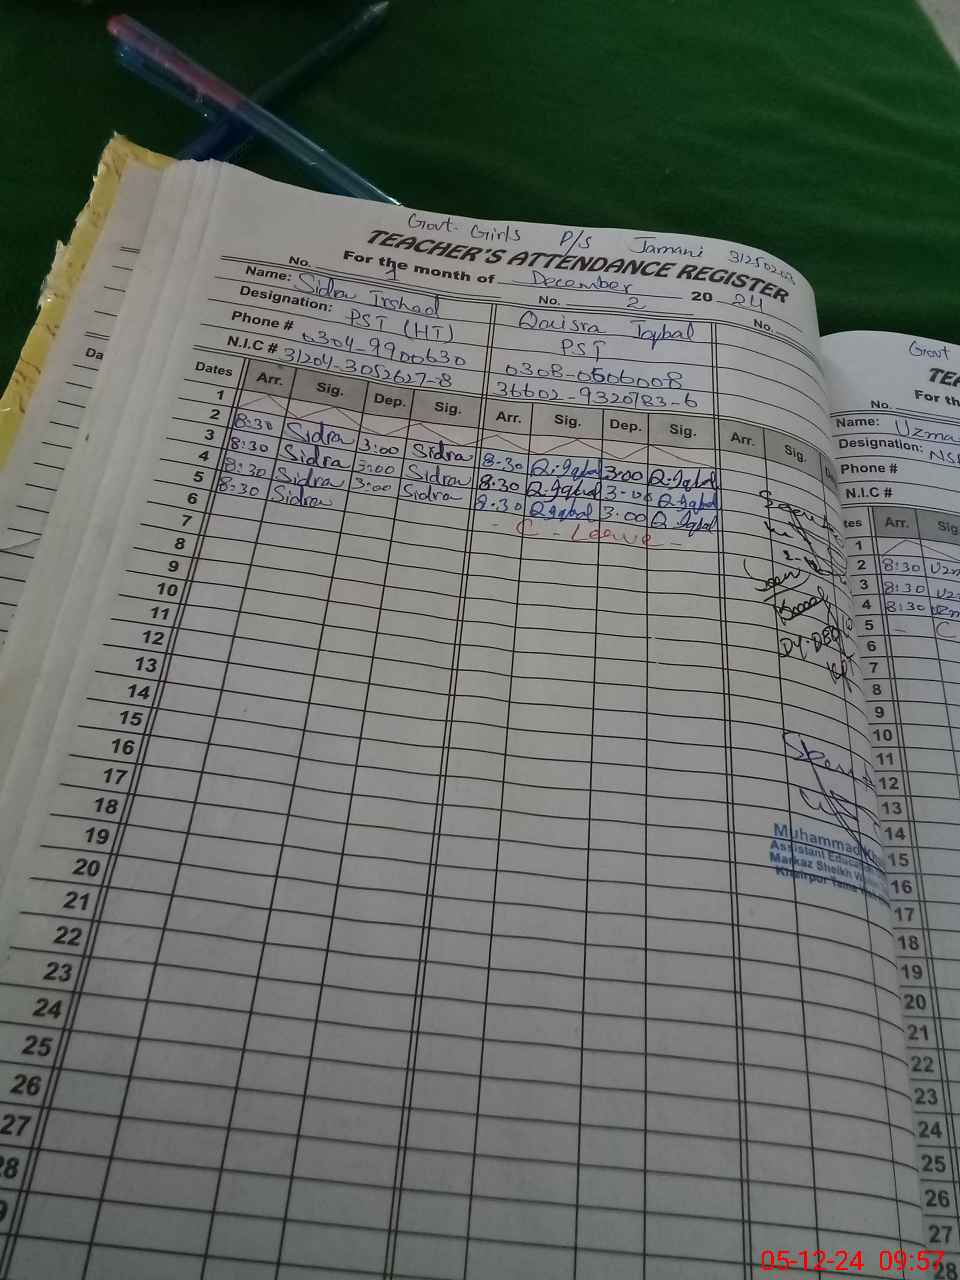 Govt. Girls P/S Jamani 31250203
TEACHER'S ATTENDANCE REGISTER
For the month of December 20 24
No. 1 No. 2 No.
Name: Sidra Irshad Qaisra Iqbal
Designation: PST (HT) PST
Phone # 0304-9900630 0308-0506008
N.I.C # 31204-3052627-8 36602-9320783-6
Dates Arr. Sig. Dep. Sig. Arr. Sig. Dep. Sig. Arr. Sig.
1
2 8:30 Sidra 3:00 Sidra 8:30 Q.Iqbal 3:00 Q.Iqbal
3 8:30 Sidra 3:00 Sidra 8:30 Q.Iqbal 3:00 Q.Iqbal
4 8:30 Sidra 3:00 Sidra 8:30 Q.Iqbal 3:00 Q.Iqbal
5 8:30 Sidra - C - Leave -
6
7
8
9
10
11
12
13
14
15
16
17
18
19
20
21
22
23
24
25
26
27
28
9
DY.DEO
Muhammad
Assistant Education
Markaz Sheikh
Khairpur Tame
Da
Govt
TE
For th
No.
Name: Uzma
Designation:
Phone #
N.I.C #
tes Arr. Sig
1
2 8:30
3 8:30
4 8:30
5 - C
6
7
8
9
10
11
12
13
14
15
16
17
18
19
20
21
22
23
24
25
26
27
28
05-12-24 09:57